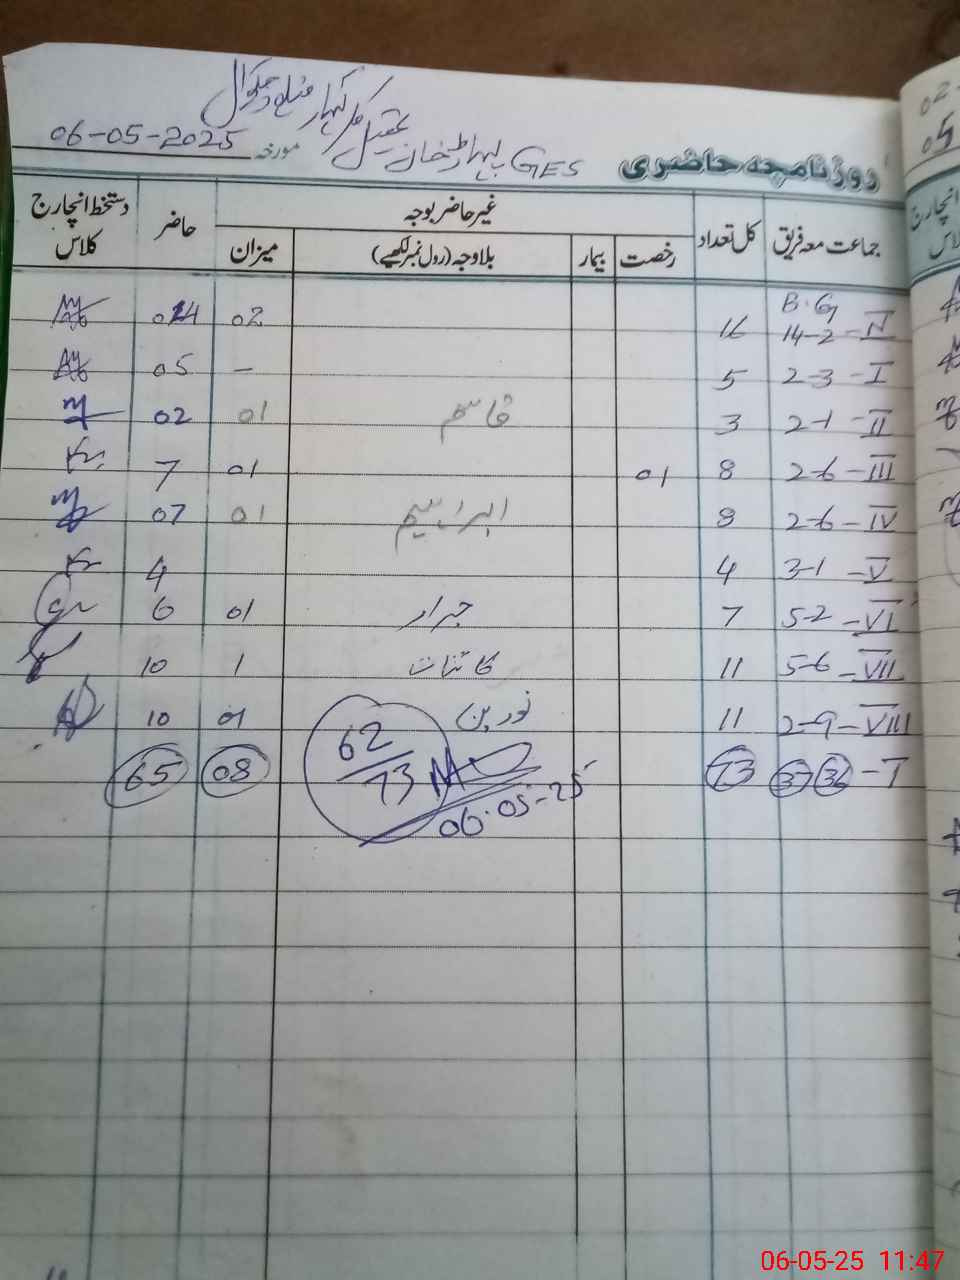 GES پہاڑ خان تحصیل کلر کہار ضلع چکوال
روزنامچہ حاضری مورخہ 06-05-2025
جماعت معہ فریق کل تعداد غیر حاضر بوجہ حاضر دستخط انچارج کلاس
رخصت بیمار بلاوجہ (رول نمبر لکھیے) میزان
B. G
N 14-2 16 02 014
I 2-3 5 – 05
II 2-1 3 قاسم 01 02
III 2-6 8 01 01 7
IV 2-6 8 ابراہیم 01 07
V 3-1 4 4
VI 5-2 7 جرار 01 6
VII 5-6 11 کائنات 1 10
VIII 2-9 11 نورین 01 10
T 36 37 73 08 65
62/73
06-05-25
06-05-25 11:47